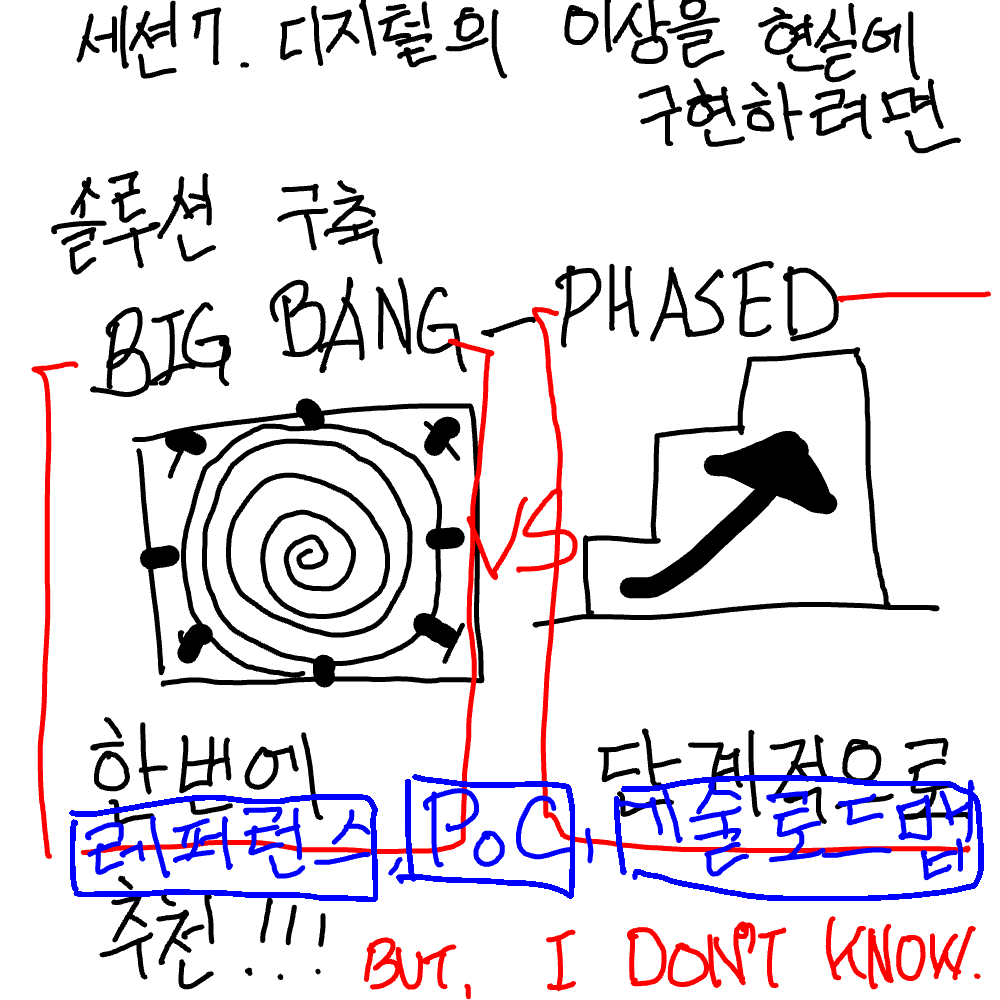 세션7. 디지털의 이상을 현실에
구현하려면
솔루션 구축
BIG BANG - PHASED
VS
한번에 단계적으로
레퍼런스, PoC, 기술로드맵
추천!!!
BUT, I DON'T KNOW.